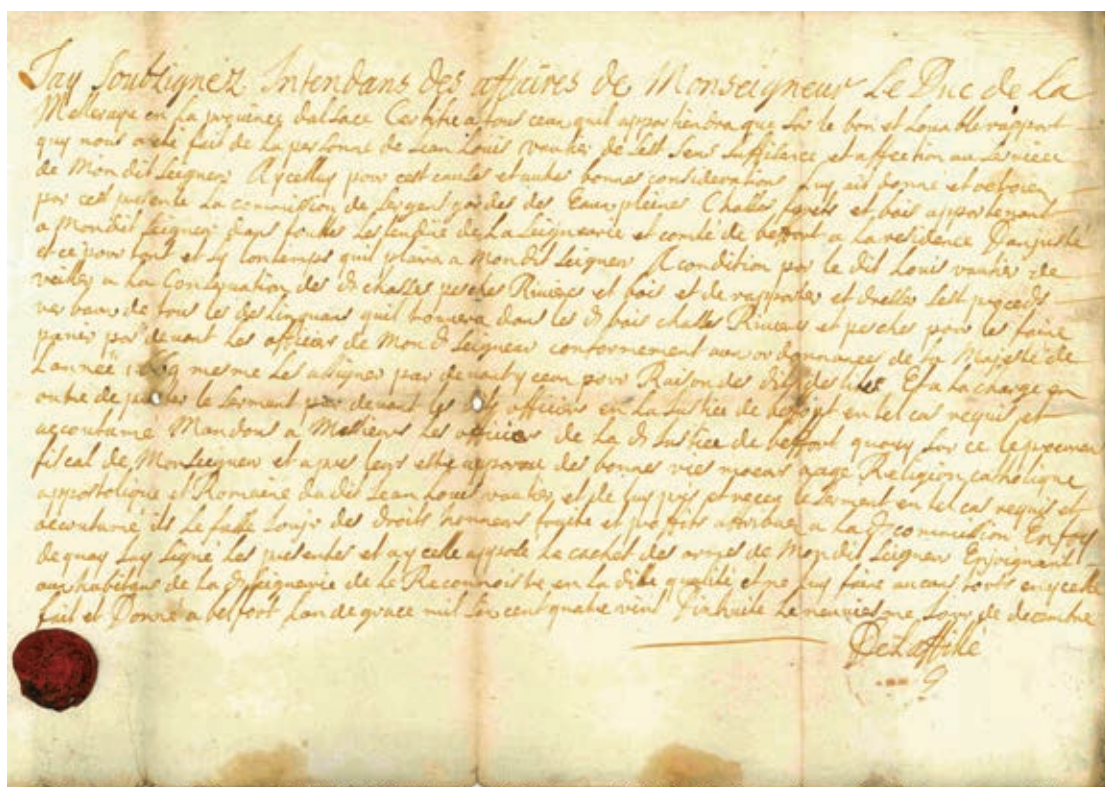 Jay Soubzignez Intendans des affaires de Monseigneur Le Duc de La
Melleraye en La province dalsace Certifie a tous ceux quil appartiendra que sur le bon et Louable rapport
quy nous a esté fait de La personne de Jean Louis vautier de Sest Sens Suffisence et affection au Service
de Mon dit Seigneur A ycelluy pour cest causes et autres bonnes consideration Luy ait donné et octroié
par cest presente La commission de Sergent gardes des Eaux pleines Chasses forets et bois appartenant
a Mondit Seigneur dans touttes Lestendue de La Seigneurie et comté de beffort a La residence Danjustte
et ce pour tout et Sy Lontemps quil plaira a Mondit Seigneur A condition par le dit Louis vautier de
veiller a La Conservation des d chasses pesches Rivieres et bois et de rapporter et dresser Sest proceds
verbaux de tous les deslinquans quil trouvera dans les d bois chasses Rivieres et pesches pour les faire
panir par devant Les officiers de Mon d Seigneur conformement aux ordonnances de Sa Majesté de
Lannée mesme Les assigner par devant yceux pour Raison des dits deslits Et a La charge en
outre de prester le Sermant par devant les d officiers en La Justice de beffort en tel cas requis et
accoutumé Mandons a Messieurs Les officiers de La d Justice de beffort quouy Sur ce le procureur
fiscal de Monseigneur et apres leurs estre apparue des bonnes vies moeurs aage Religion catholique
appostolique et Romaine du dit Jean Louis vautier et de luy pris et receu le serment en tel cas requis et
accoutumé ils Le fasse Jouir des droits honneurs et proffits attribuez a La d commission En foy
de quoy Jay Signé Les presentes et a ycelle apposé Le cachet des armes de Mon dit Seigneur Enjoignant
aux habitans de la d Seigneurie de Le Reconnoistre en La ditte qualité et ne leur faire aucuns torts en ycelle
fait et Donné a belfort Lan de grace mil Six cent quatre vint Dixhuite Le neuviesme Jour de decembre
De Laffillé